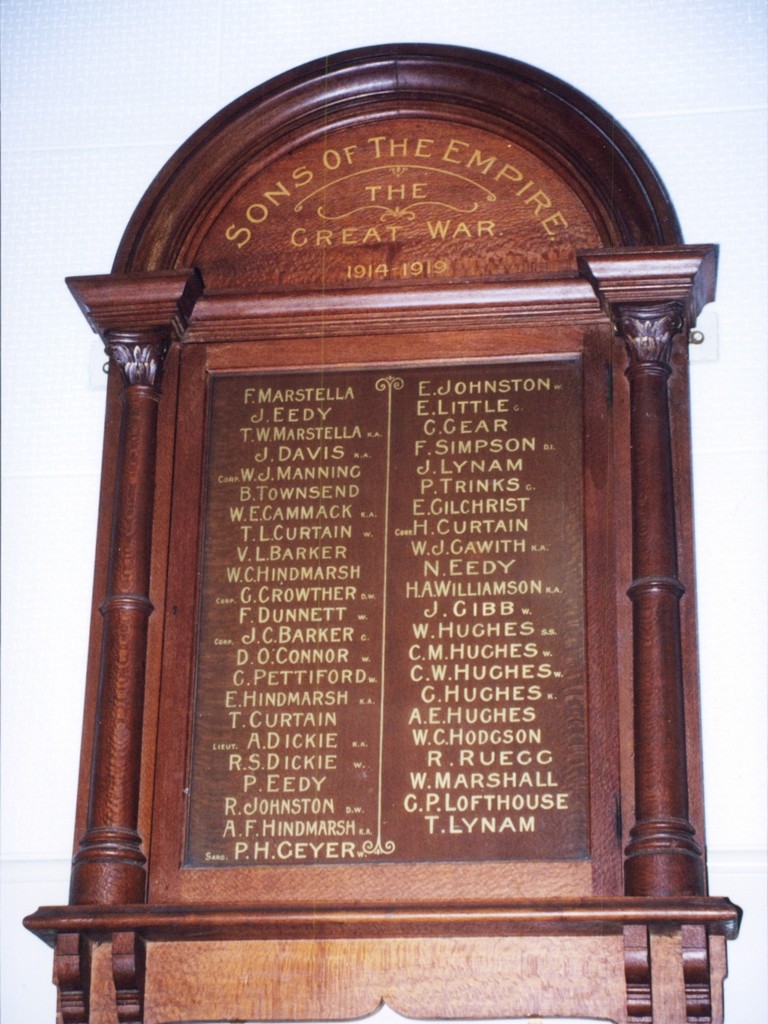 SONS OF THE EMPIRE.
THE
GREAT WAR.
1914-1919
F. MARSTELLA
J. EEDY
T. W. MARSTELLA K.A.
J. DAVIS K.A.
CORP. W. J. MANNING
B. TOWNSEND
W. E. CAMMACK K.A.
T. L. CURTAIN W.
V. L. BARKER
W. C. HINDMARSH
CORP. G. CROWTHER D.W.
F. DUNNETT W.
CORP. J. C. BARKER G.
D. O'CONNOR W.
G. PETTIFORD W.
E. HINDMARSH K.A.
T. CURTAIN
LIEUT. A. DICKIE K.A.
R. S. DICKIE W.
P. EEDY
R. JOHNSTON D.W.
A. F. HINDMARSH K.A.
SARG. P. H. GEYER W.
E. JOHNSTON W.
E. LITTLE G.
G. GEAR
F. SIMPSON D.I.
J. LYNAM
P. TRINKS G.
E. GILCHRIST
CORP. H. CURTAIN
W. J. GAWITH K.A.
N. EEDY
H. A. WILLIAMSON K.A.
J. GIBB W.
W. HUGHES S.S.
C. M. HUGHES W.
C. W. HUGHES W.
G. HUGHES K.
A. E. HUGHES
W. C. HODGSON
R. RUEGG
W. MARSHALL
G. P. LOFTHOUSE
T. LYNAM